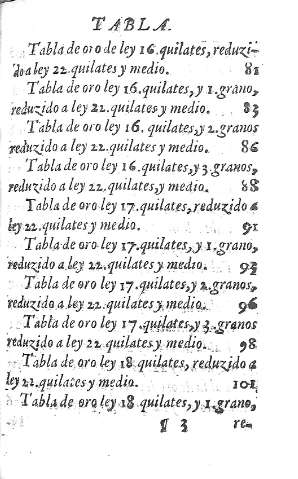 TABLA.
Tabla de oro de ley 16. quilates, reduzi-
do a ley 22. quilates y medio. 81
Tabla de oro ley 16. quilates, y 1. grano,
reduzido a ley 22. quilates y medio. 83
Tabla de oro ley 16. quilates, y 2. granos
reduzido a ley 22. quilates y medio. 86
Tabla de oro ley 16. quilates, y 3. granos,
reduzido a ley 22. quilates y medio. 88
Tabla de oro ley 17. quilates, reduzido a
ley 22. quilates y medio. 91
Tabla de oro ley 17. quilates, y 1. grano,
reduzido a ley 22. quilates y medio. 93
Tabla de oro ley 17. quilates, y 2. granos,
reduzido a ley 22. quilates y medio. 96
Tabla de oro ley 17. quilates, y 3. granos
reduzido a ley 22. quilates y medio. 98
Tabla de oro ley 18 quilates, reduzido a
ley 22. quilates y medio. 101
Tabla de oro ley 18 quilates, y 1. grano,
¶ 3 re-